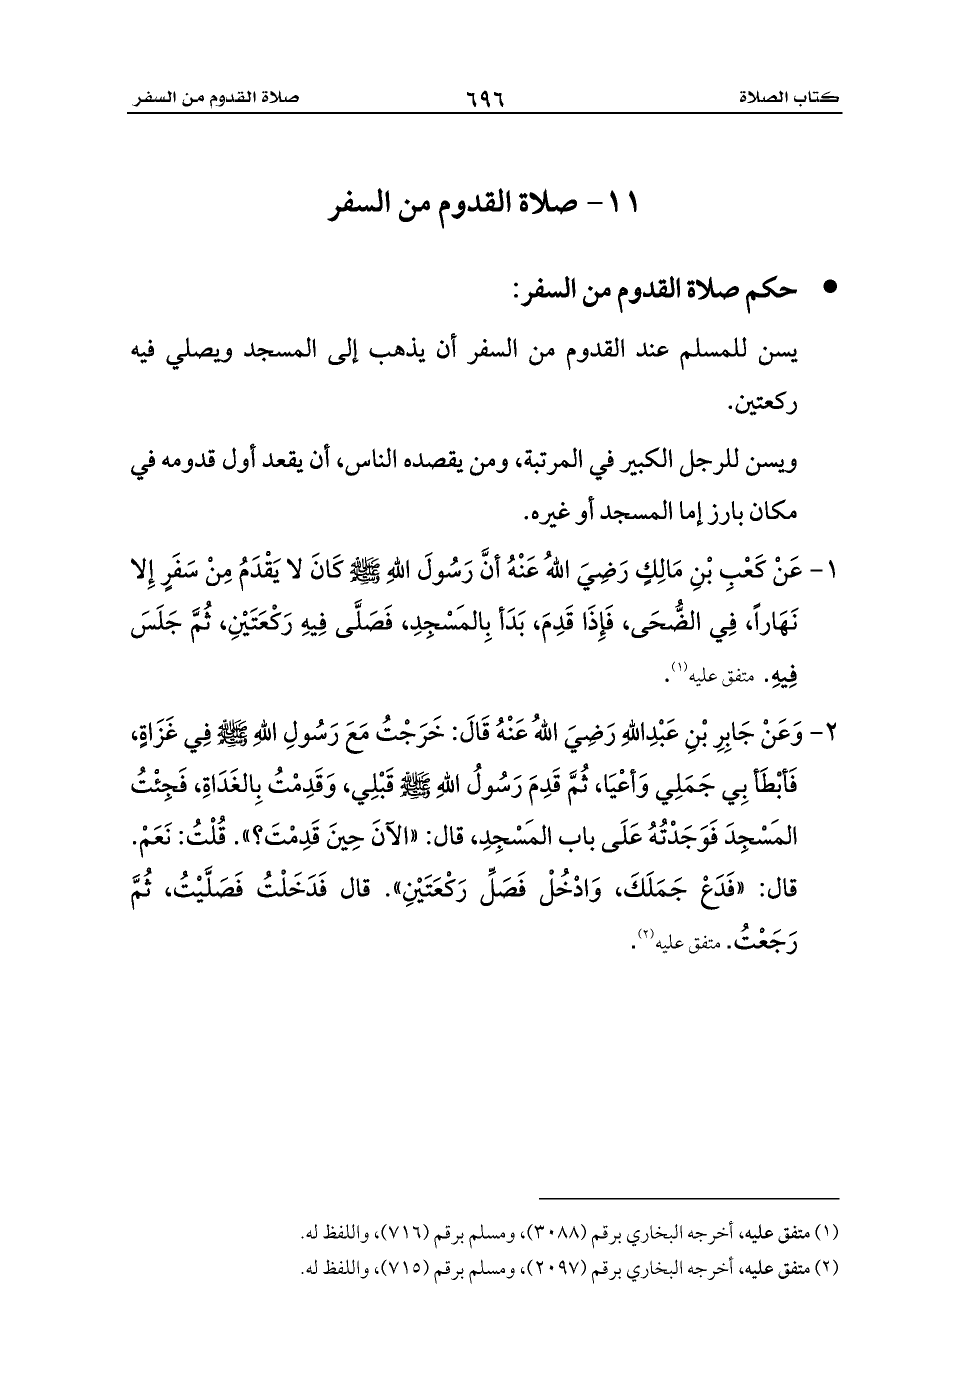 كتاب الصلاة ٦٩٦ صلاة القدوم من السفر
١١- صلاة القدوم من السفر
• حكم صلاة القدوم من السفر:
يسن للمسلم عند القدوم من السفر أن يذهب إلى المسجد ويصلي فيه
ركعتين.
ويسن للرجل الكبير في المرتبة، ومن يقصده الناس، أن يقعد أول قدومه في
مكان بارز إما المسجد أو غيره.
١- عَنْ كَعْبِ بْنِ مَالِكٍ رَضِيَ اللهُ عَنْهُ أنَّ رَسُولَ اللهِ ﷺ كَانَ لا يَقْدَمُ مِنْ سَفَرٍ إِلا
نَهَاراً، فِي الضُّحَى، فَإِذَا قَدِمَ، بَدَأ بِالمَسْجِدِ، فَصَلَّى فِيهِ رَكْعَتَيْنِ، ثُمَّ جَلَسَ
فِيهِ. متفق عليه(١).
٢- وَعَنْ جَابِرِ بْنِ عَبْدِاللهِ رَضِيَ اللهُ عَنْهُ قَالَ: خَرَجْتُ مَعَ رَسُولِ اللهِ ﷺ فِي غَزَاةٍ،
فَأبْطَأ بِي جَمَلِي وَأعْيَا، ثُمَّ قَدِمَ رَسُولُ اللهِ ﷺ قَبْلِي، وَقَدِمْتُ بِالغَدَاةِ، فَجِئْتُ
المَسْجِدَ فَوَجَدْتُهُ عَلَى باب المَسْجِدِ، قال: «الآنَ حِينَ قَدِمْتَ؟». قُلْتُ: نَعَمْ.
قال: «فَدَعْ جَمَلَكَ، وَادْخُلْ فَصَلِّ رَكْعَتَيْنِ». قال فَدَخَلْتُ فَصَلَّيْتُ، ثُمَّ
رَجَعْتُ. متفق عليه(٢).
(١) متفق عليه، أخرجه البخاري برقم (٣٠٨٨)، ومسلم برقم (٧١٦)، واللفظ له.
(٢) متفق عليه، أخرجه البخاري برقم (٢٠٩٧)، ومسلم برقم (٧١٥)، واللفظ له.